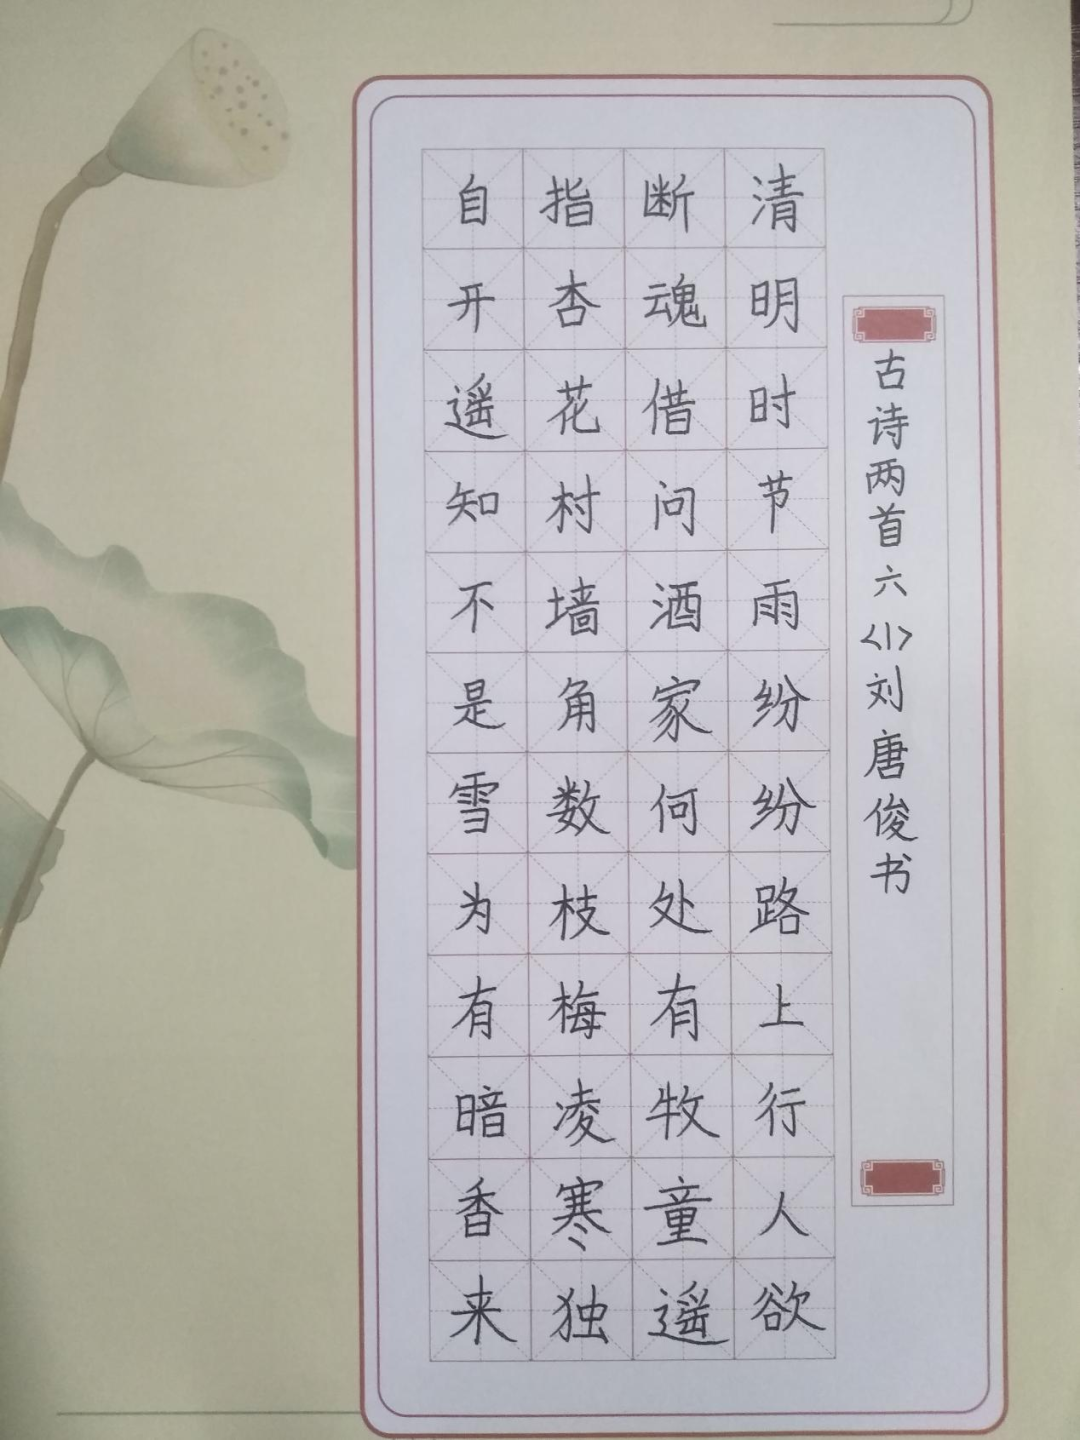 古诗两首六<1>刘唐俊书
清明时节雨纷纷路上行人欲
断魂借问酒家何处有牧童遥
指杏花村墙角数枝梅凌寒独
自开遥知不是雪为有暗香来